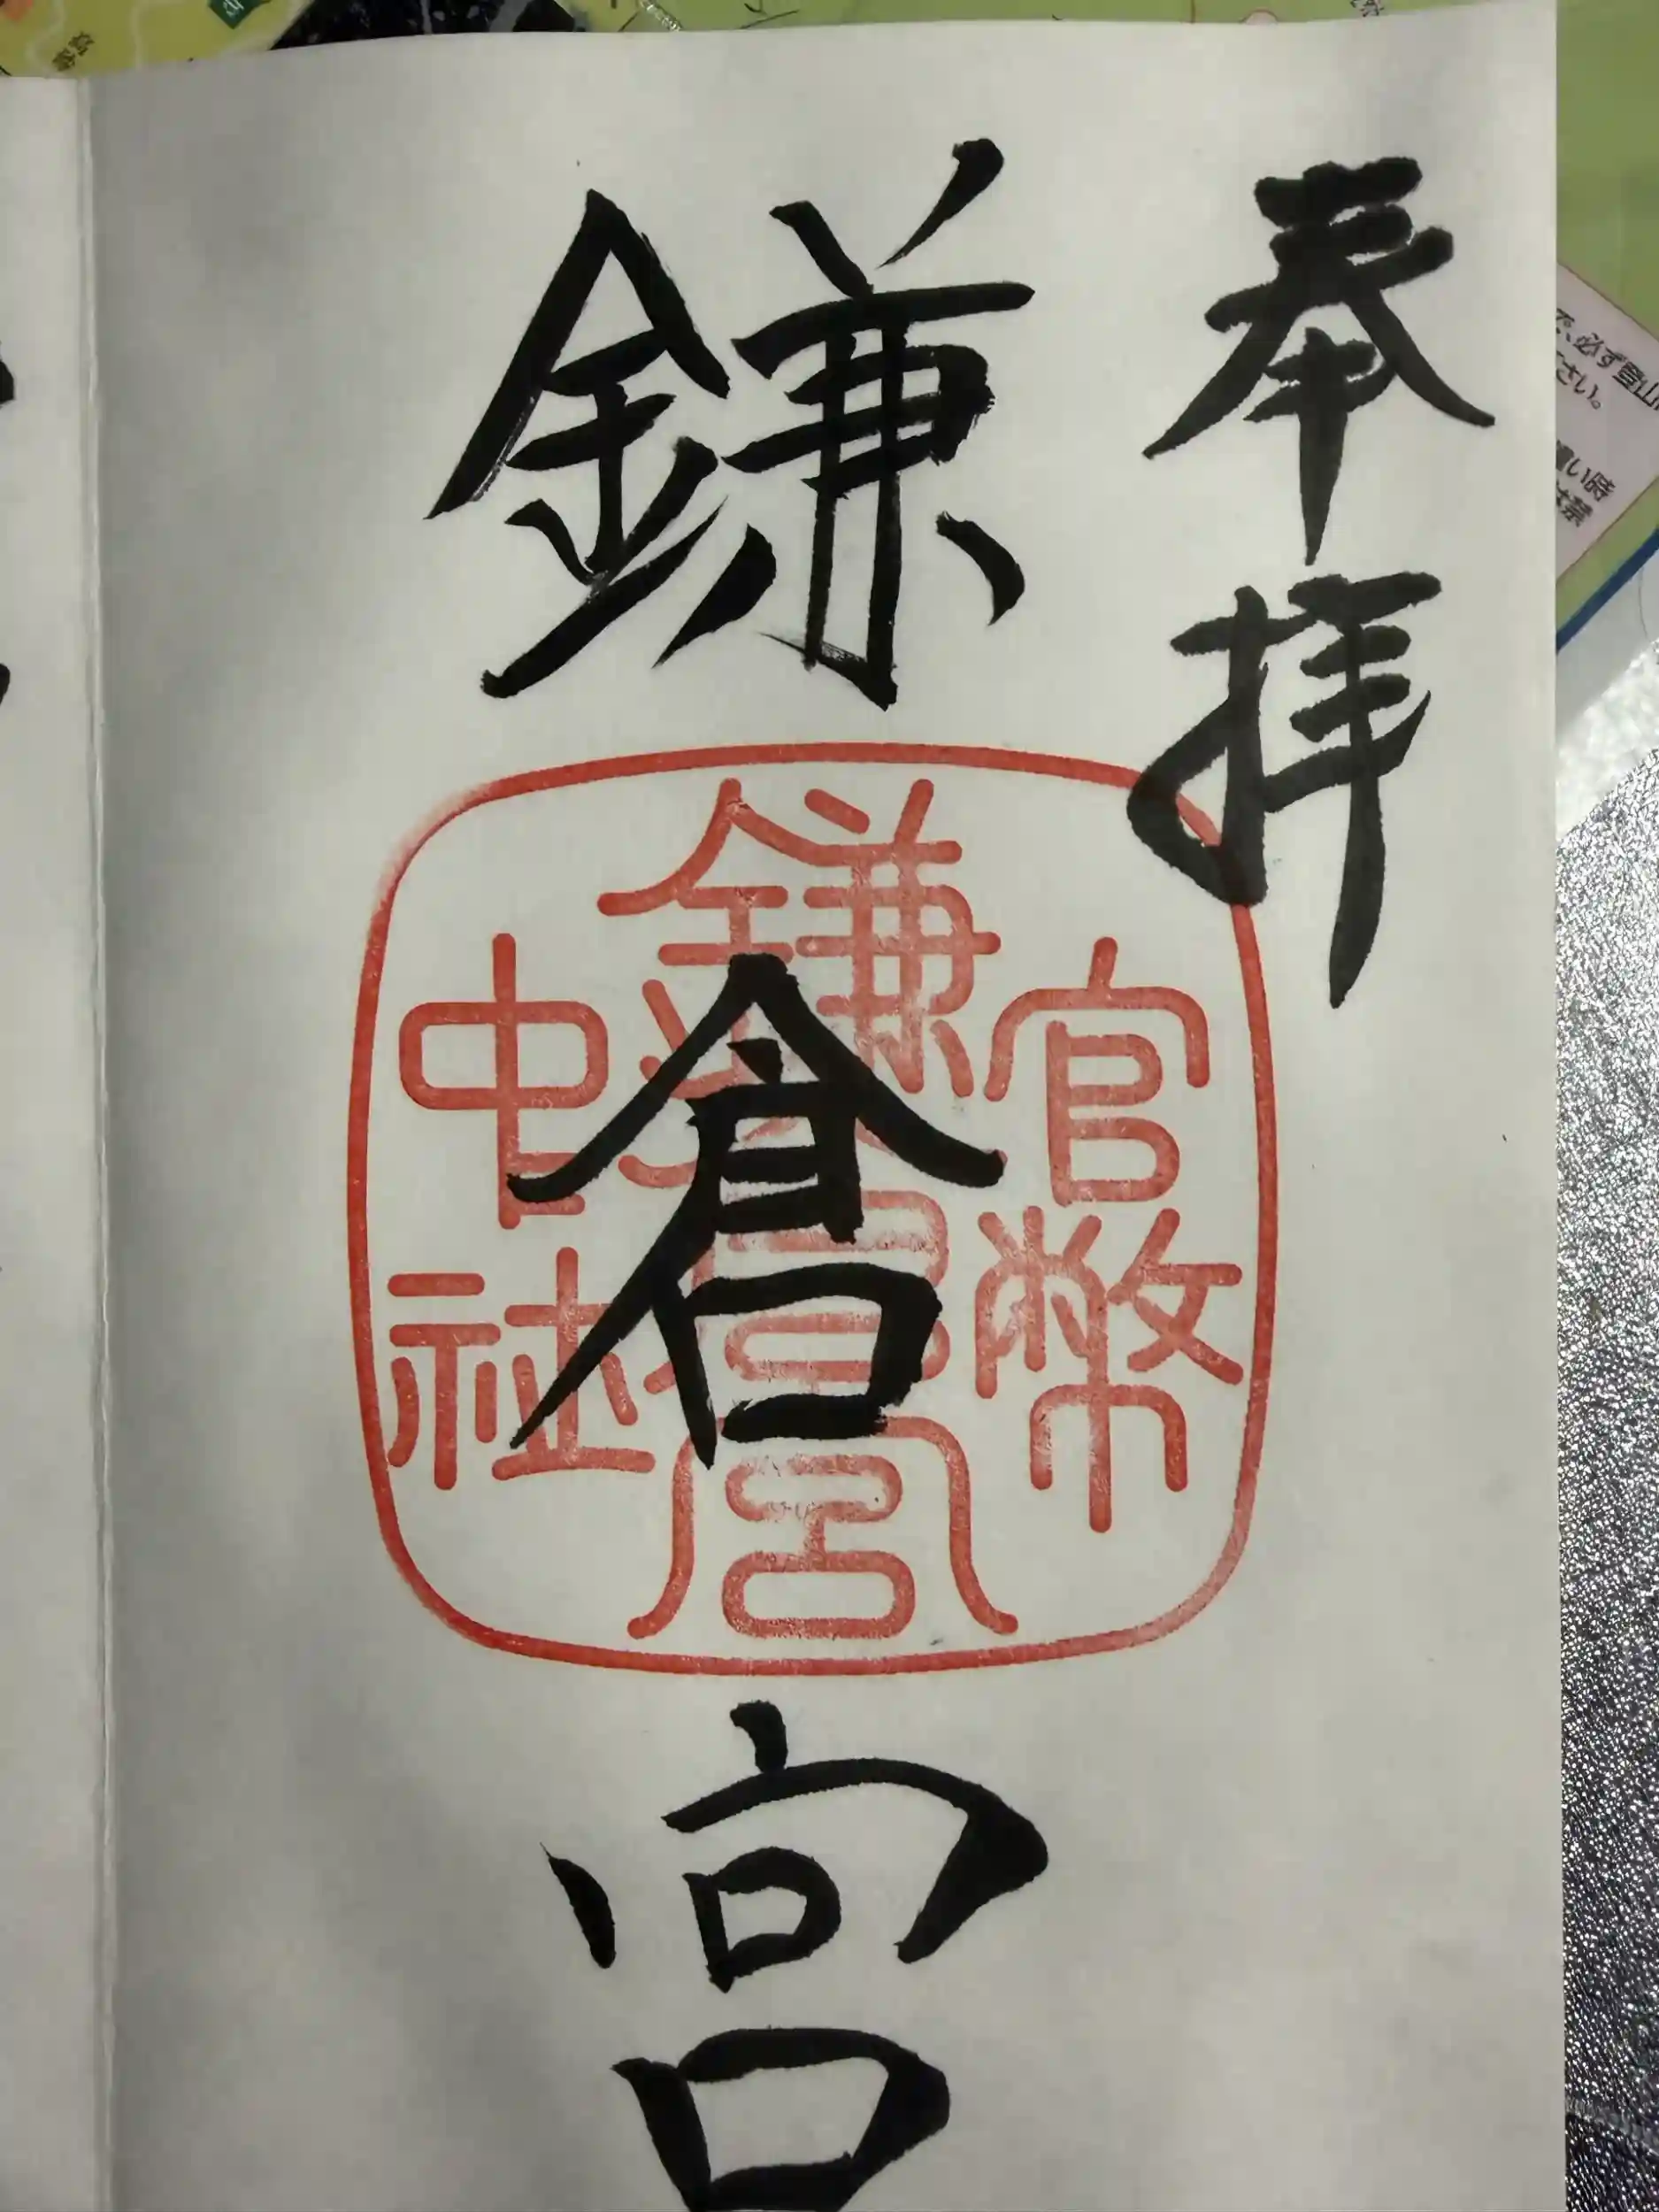 奉拝
鎌倉宮
官幣
鎌倉宮
中社
で、必ず登山
さい。
い時
は禁